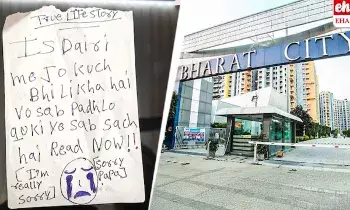 True Life Story
Is Dairi
me Jo kuch
Bhi likha hai
Vo sab Padhlo
quki ye sab sach
hai Read NOW!!
[I'm really sorry]
[Sorry Papa]
BHARAT CITY
eh
EHA